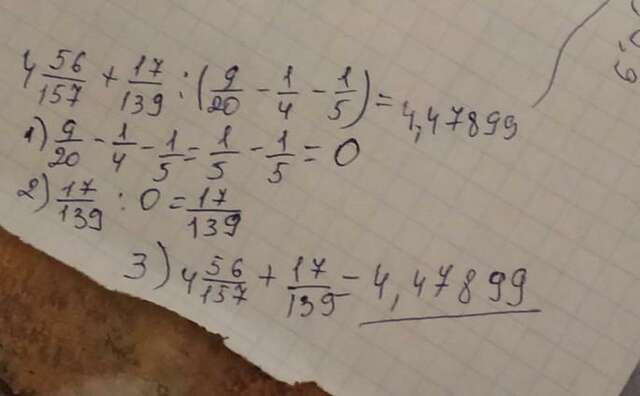 4 56/157 + 17/139 : (9/20 - 1/4 - 1/5) = 4,47899
1) 9/20 - 1/4 - 1/5 = 1/5 - 1/5 = 0
2) 17/139 : 0 = 17/139
3) 4 56/157 + 17/139 - 4,47899